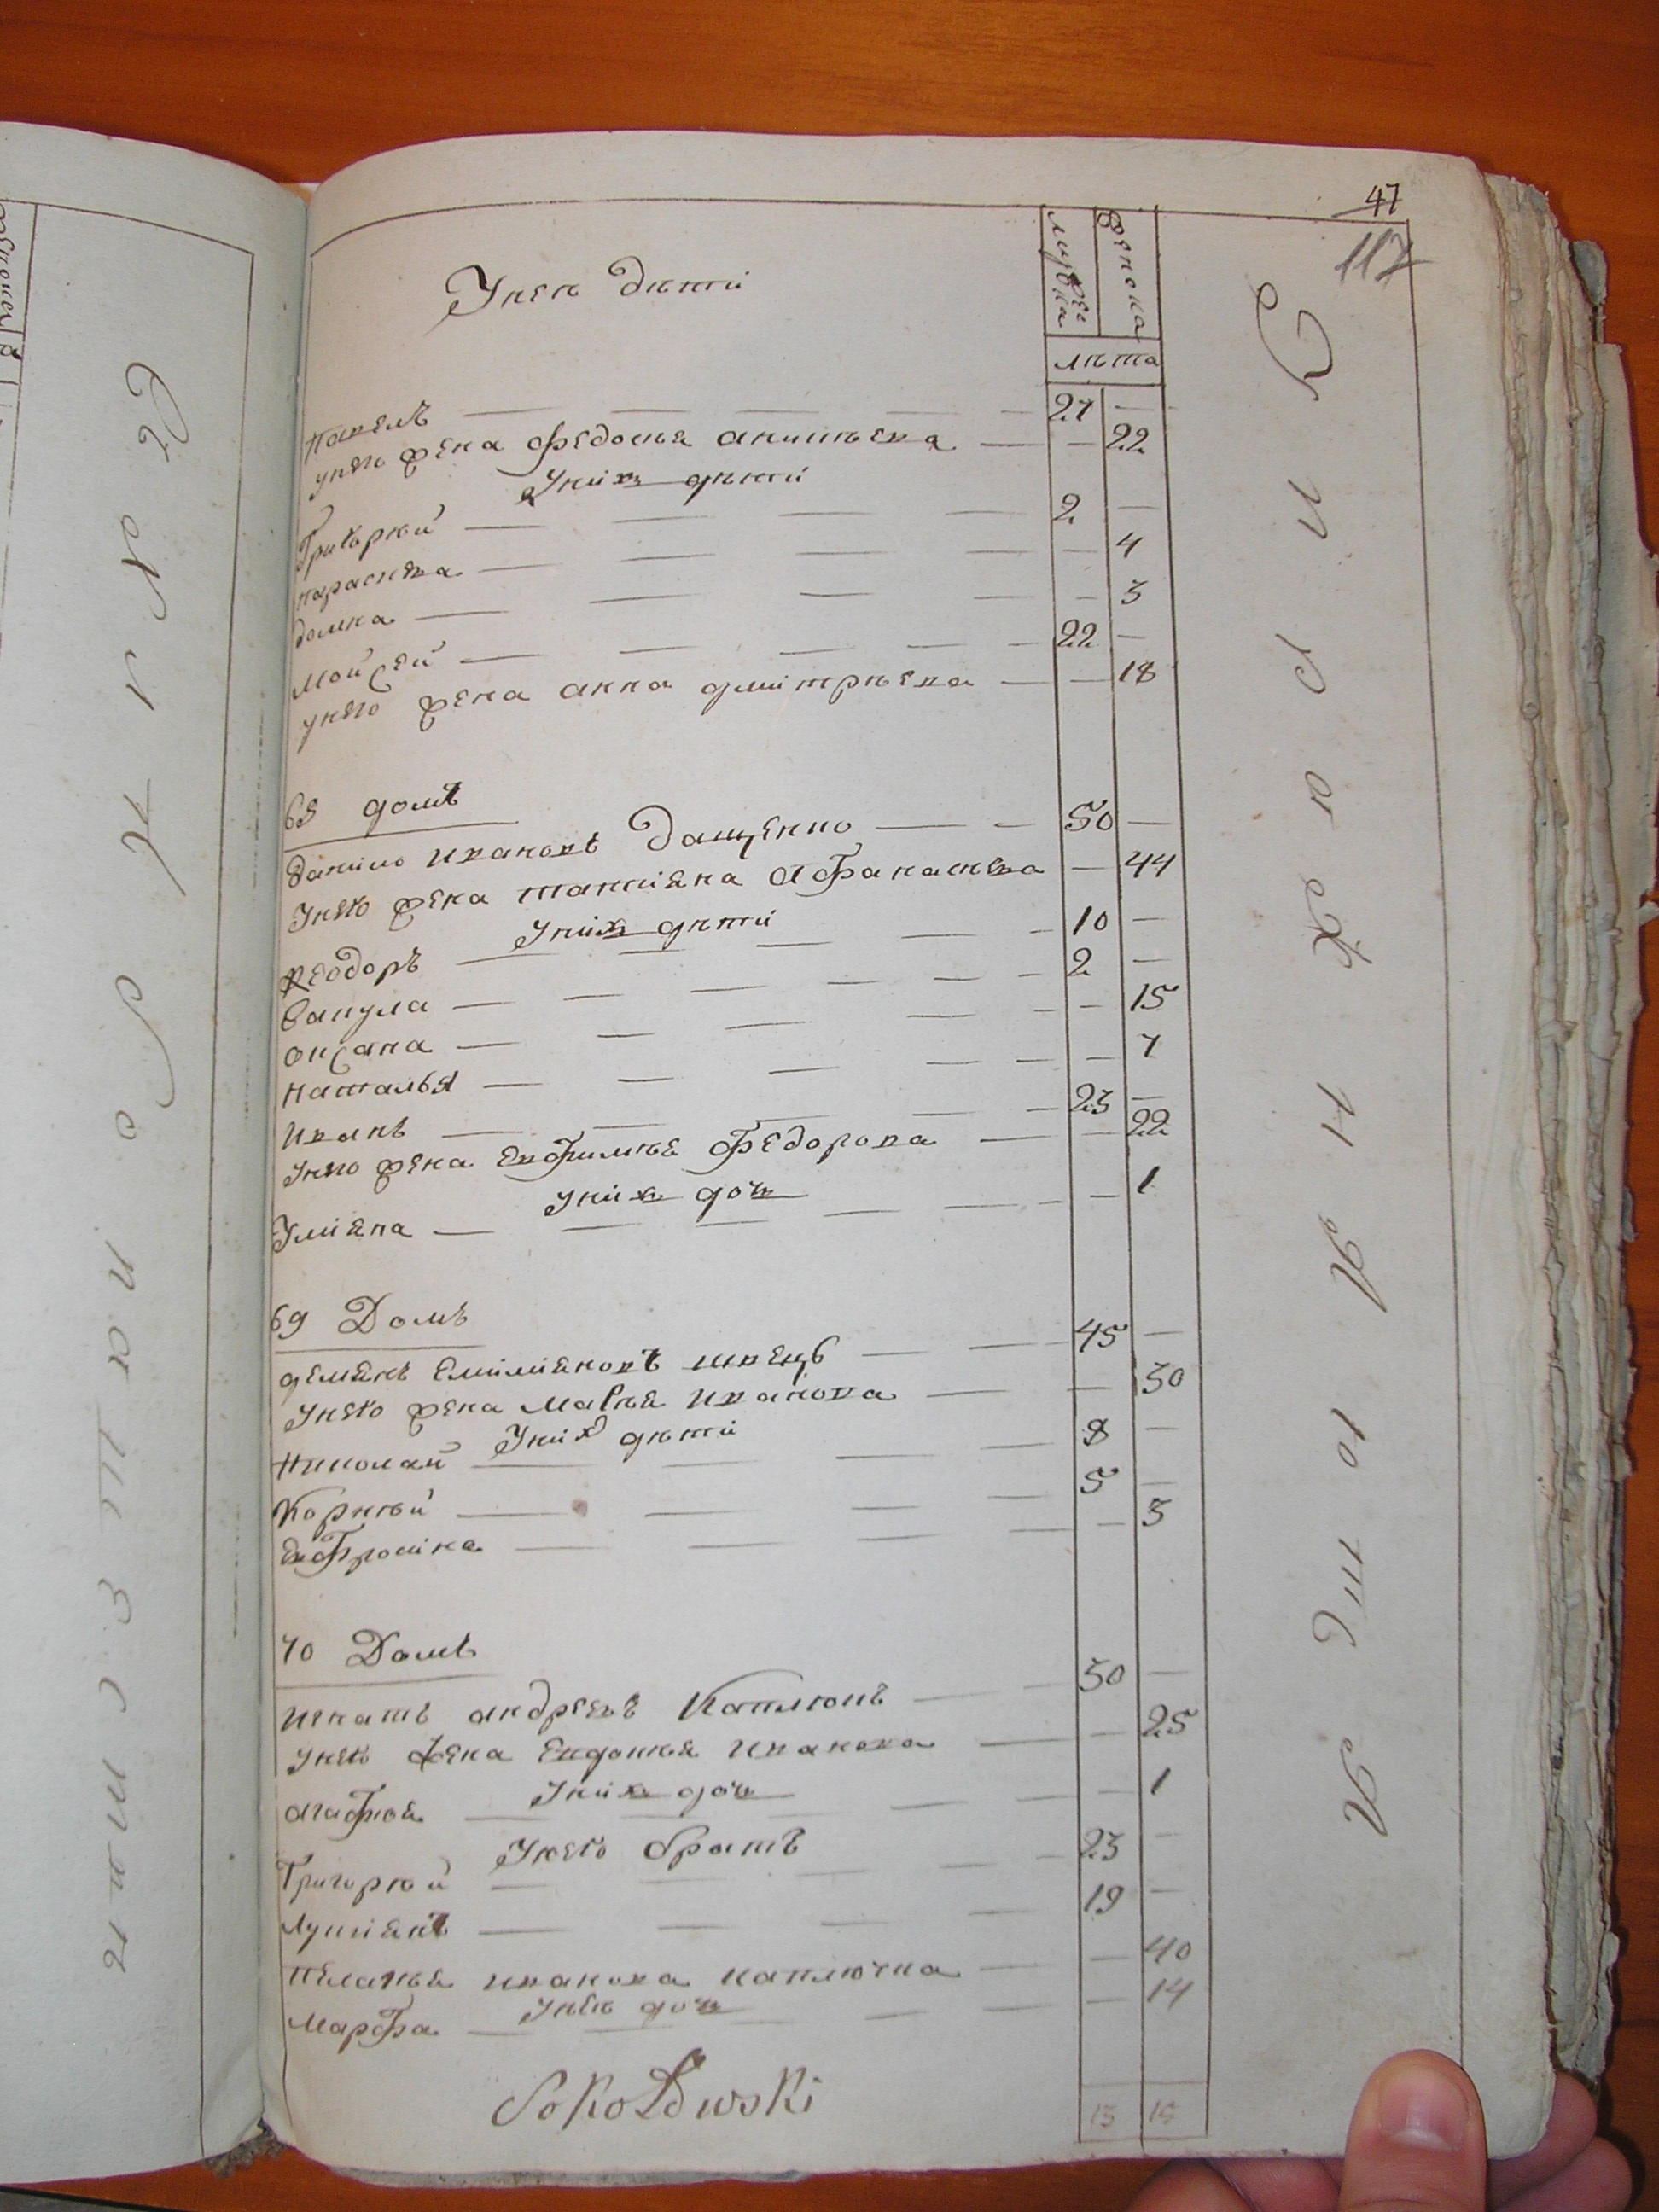 47
117
Унея дѣти
мужеска
женска
лѣта
Павелъ — — — — — 27 —
унего жена Федосья — — 22
Униxъ дѣти
Григорій — — — — 2 —
параскева — — — — — 4
домка — — — — — 3
Мойсей — — — — 22 —
унего жена анна дмитриева — — 18
68 домъ
данило Ивановъ Дащенко — — 50 —
Унего жена татіяна Афанасиева — 44
Унихъ дѣти
Феодоръ — — — — 10 —
Вакула — — — — 2 —
оксана — — — — — 15
Наталья — — — — — 7
Иванъ — — — — 23 —
Унего жена Евфимия Федорова — — 22
Унихъ дочь
Уліяна — — — — — 1
69 Домъ
демянъ Емиліяновъ швецъ — — 45 —
Унего жена Марья Иванова — — 30
Унихъ дѣти
Николай — — — — 8 —
Корній — — — — 5 —
Евфросіна — — — — — 3
70 Домъ
Игнатъ андреевъ Каплюнъ — — 30 —
Унего жена Евдокія Иванова — — 25
Унихъ дочь
агафія — — — — — 1
Унего братъ
Григорій — — — — 23 —
Лукіянъ — — — — 19 —
Пелагія иванова — — 40
Унея дочь
Марфа — — — — — 14
Sokołowski
13 15